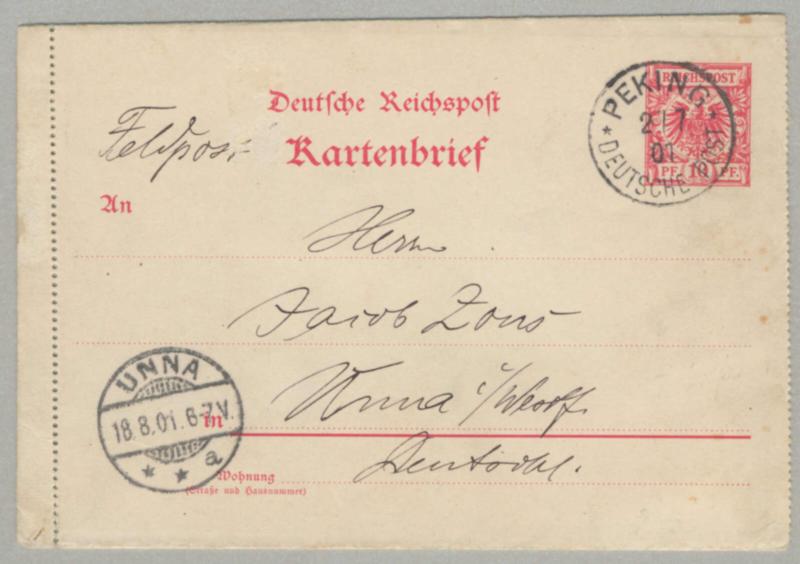 REICHSPOST
10
PF. PF.
PEKING
2/7
01
* DEUTSCHE POST *
Deutsche Reichspost
Feldpost
Kartenbrief
An
Herrn
Jacob Zons
Unna i/Westf.
in
Deutschl.
UNNA
18.8.01. 6-7V.
* * a
Wohnung
(Straße und Hausnummer)